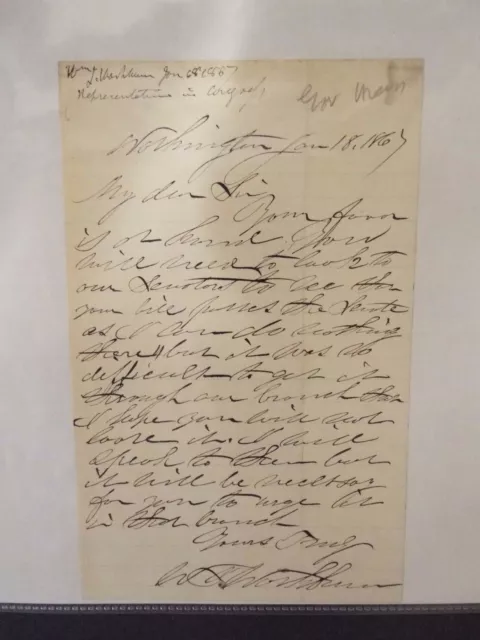 Wm. Washburn Jan 18 1867
Representative in Congress
Gov
Washington Jan 18, 1867
My dear Sir
Your favor
is at hand. You
will need to look to
our Senators to see that
your bill passes the Senate
as I can do nothing
there, but it was so
difficult to get it
through our branch that
I hope you will not
loose it. I will
speak to them but
it will be necessary
for you to urge it
in that branch
Yours Truly
W B Washburn